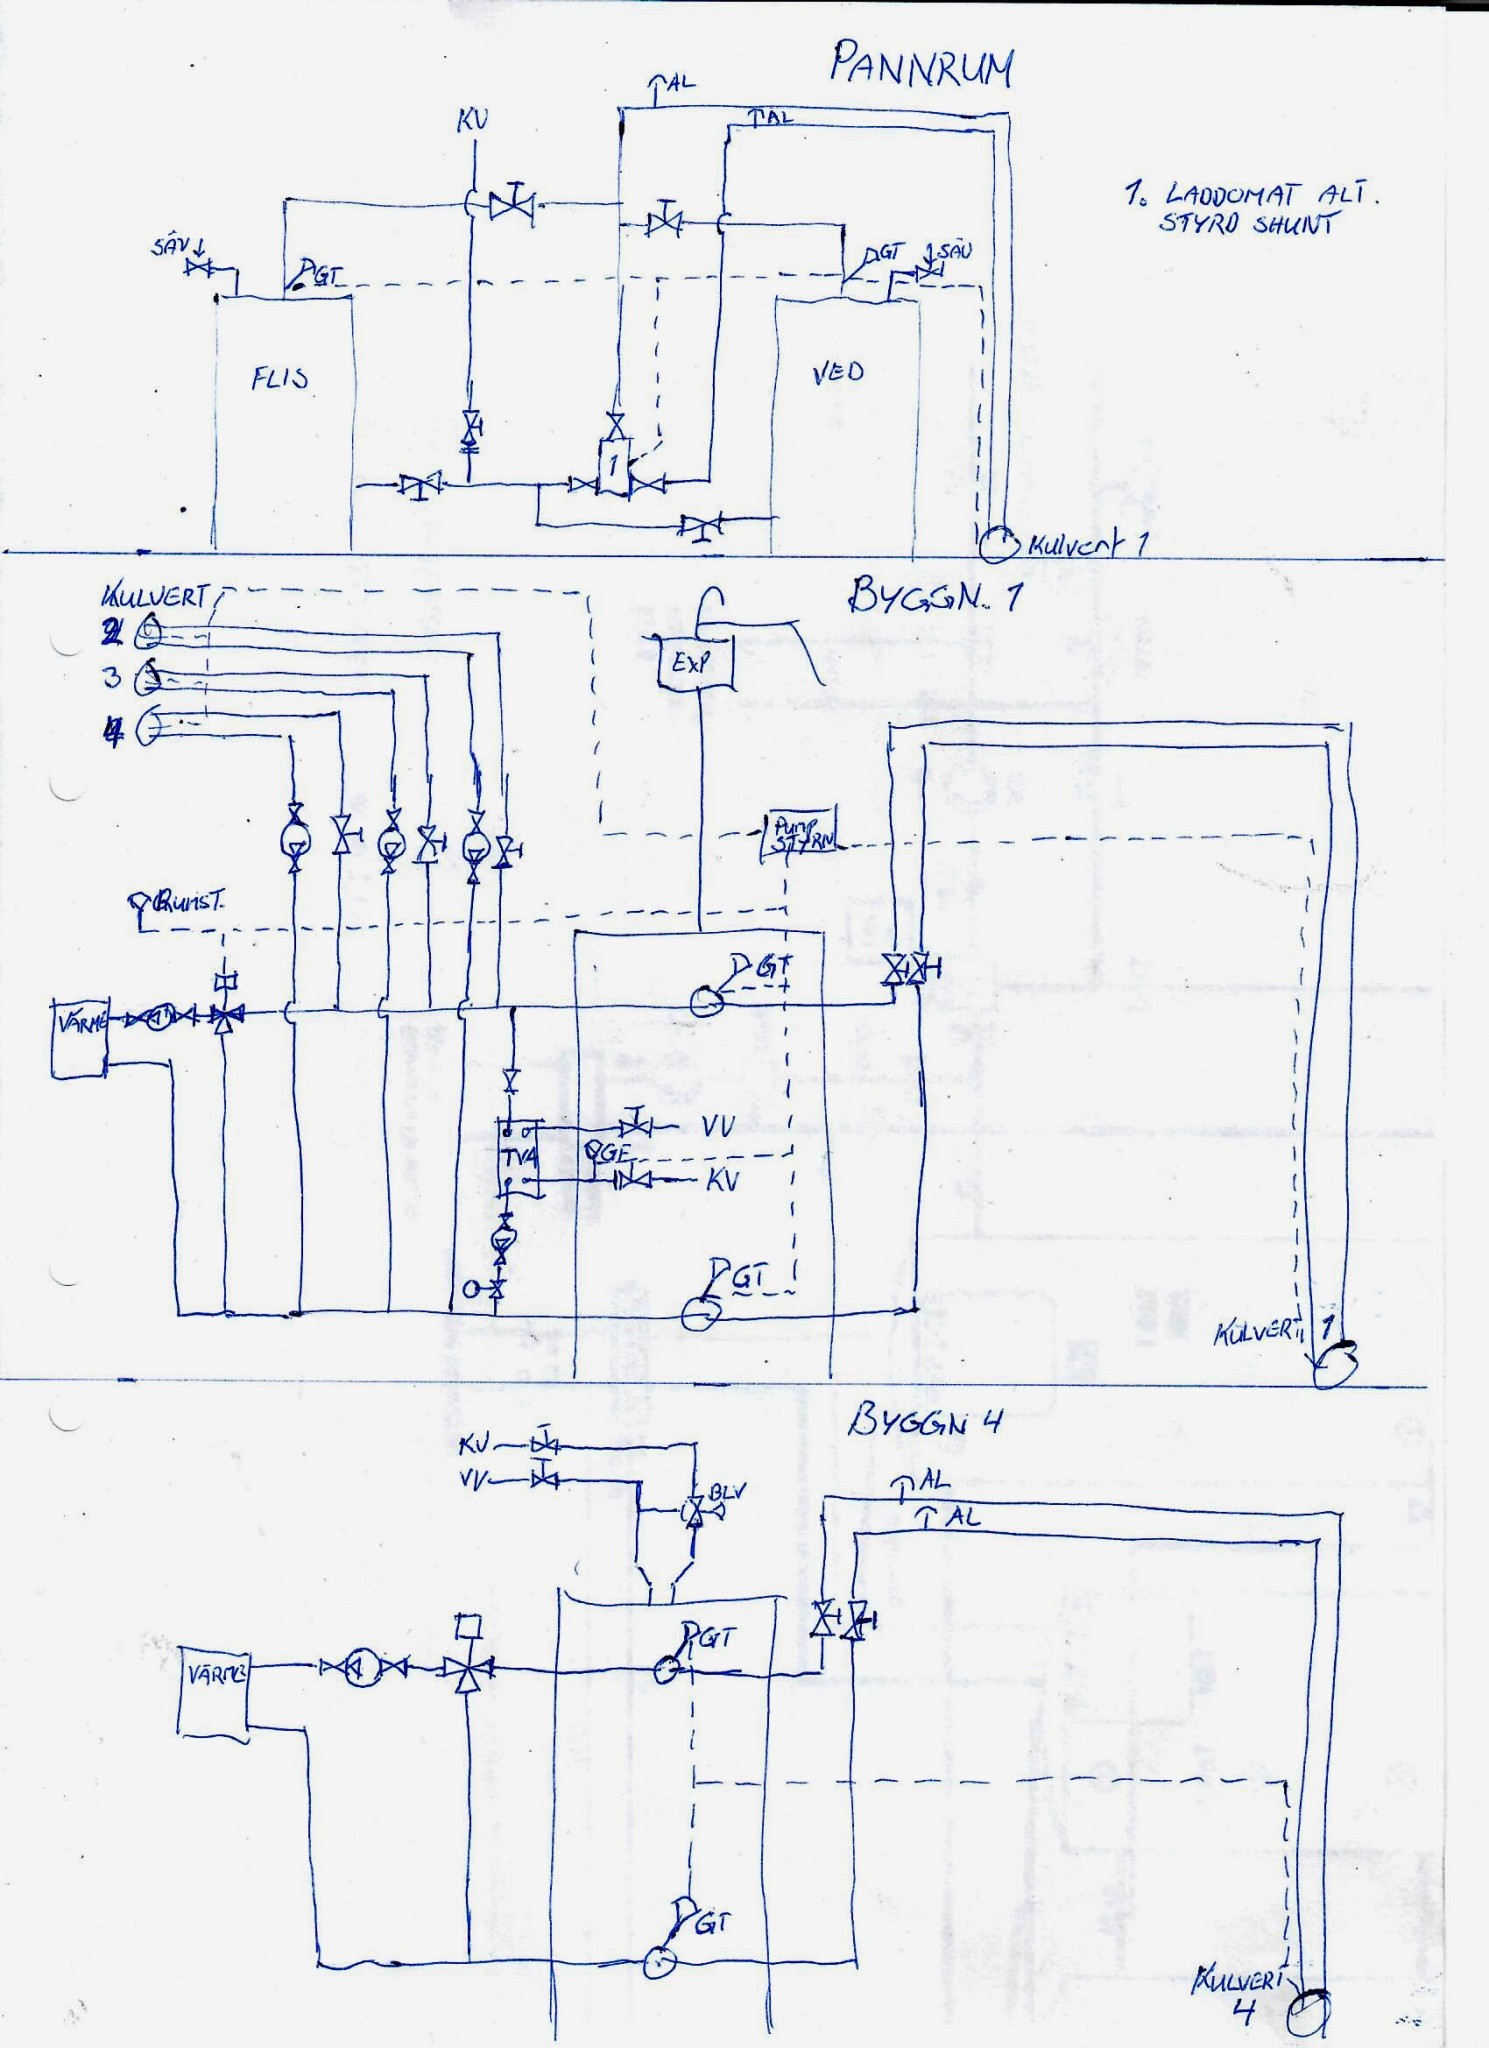 PANNRUM
AL
KV
AL
1. LADDOMAT ALT.
STYRD SHUNT
SÄV
GT
GT
SÄV
FLIS
VED
1
Kulvert 1
KULVERT
BYGGN. 1
2
3
4
EXP
PUMP
STYRN
RUMST.
GT
VÄRME
VV
TVA
GE
KV
GT
KULVERT 1
BYGGN 4
KV
VV
BLV
AL
AL
GT
VÄRME
GT
KULVERT
4